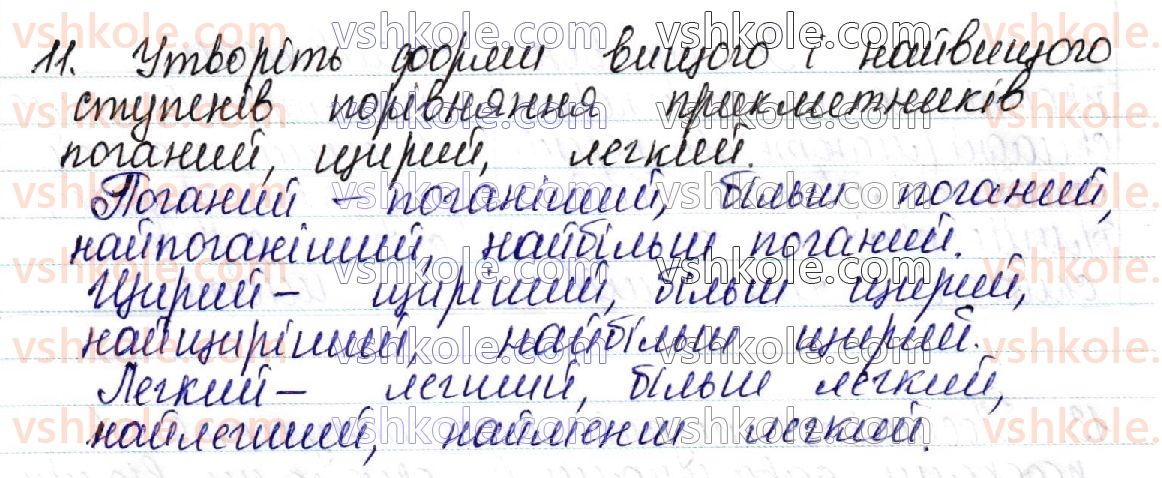 11. Утворіть форми вищого і найвищого
ступенів порівняння прикметників
поганий, щирий, легкий.
Поганий – поганіший, більш поганий,
найпоганіший, найбільш поганий.
Щирий – щиріший, більш щирий,
найщиріший, найбільш щирий.
Легкий – легший, більш легкий,
найлегший, найменш легкий.